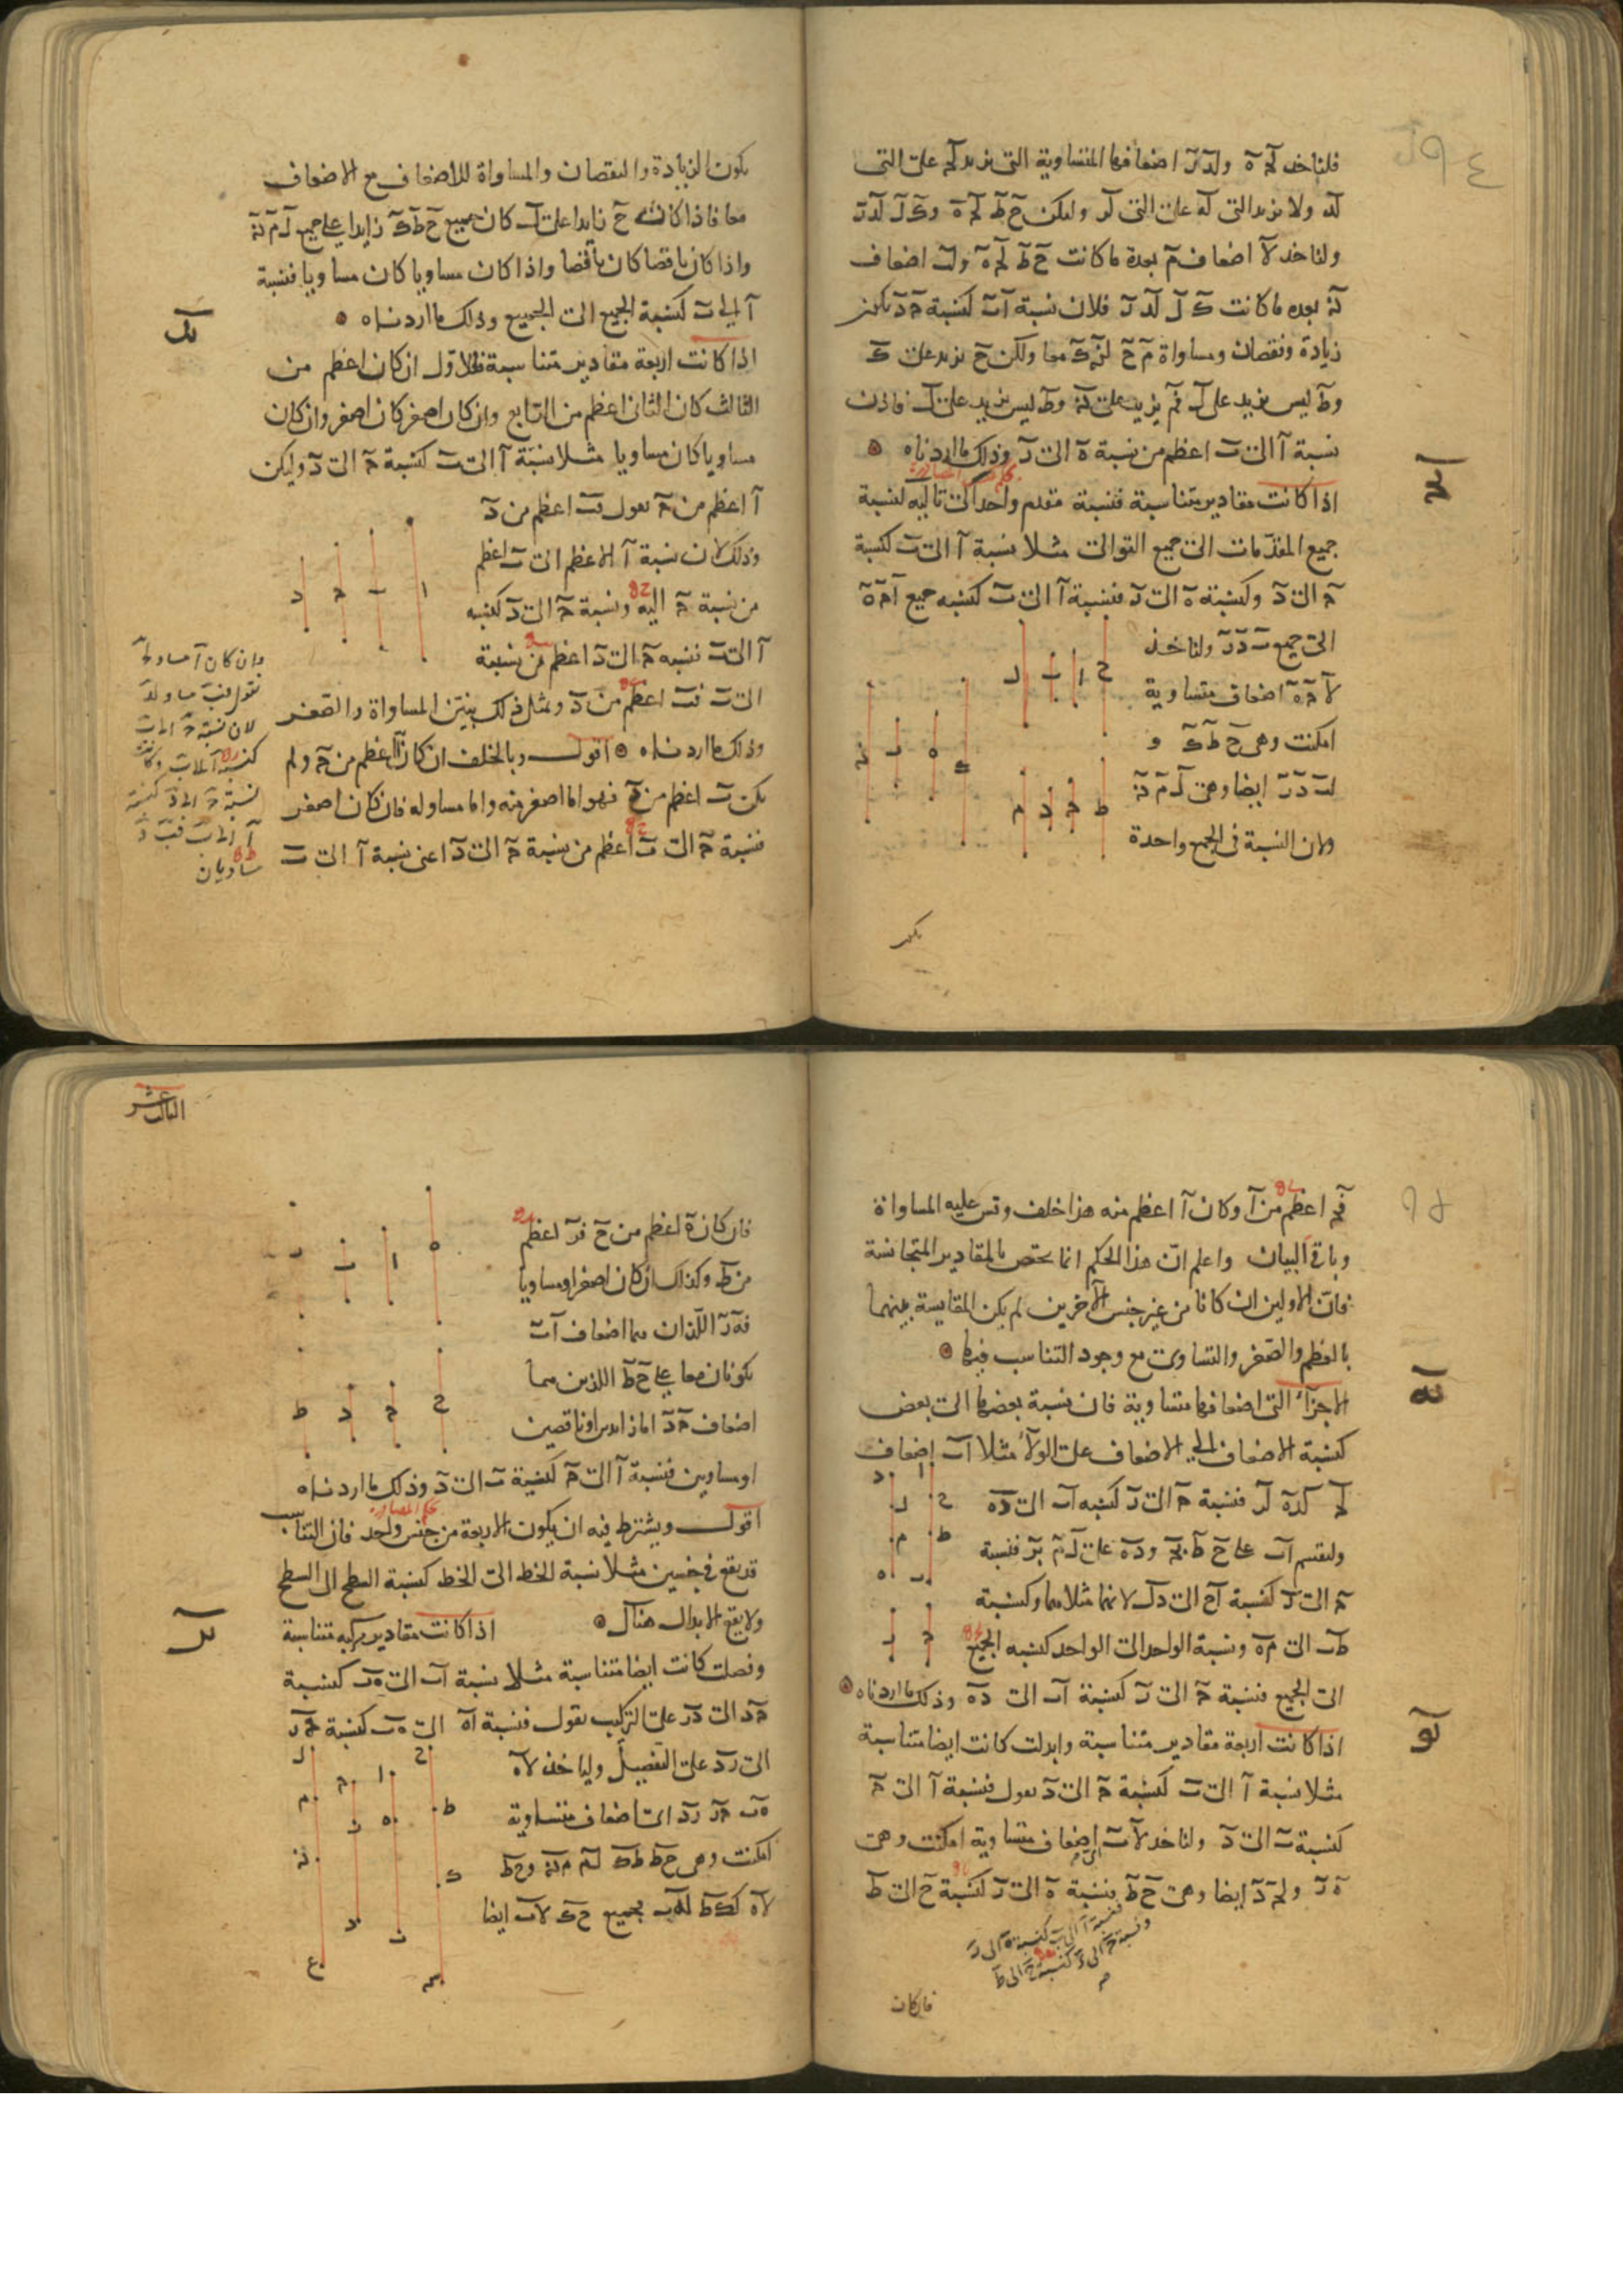 فلناخذ لجـ ه ولد ر اضعافها المتساوية التى يزيد لجـ على التى
لد ولا يزيد التى له على التى لر وليكن ح ط لجـ ه و ك ل لد ر
ولناخذ لآ اضعاف م بعدة ما كانت ح ط لجـ ه ولب اضعاف
ن بعده ما كانت ك ل لد ر فلان نسبة ا ب كنسبة جـ د يكون
زيادة ونقصان ومساواة م ح لن ك معا ولكن ح يزيد على ك
و ط ليس يزيد على ل فم يزيد على ن و ط ليس يزيد على ل فاذن
نسبة ا الى ب اعظم من نسبة ه الى ر وذلك ما اردناه
كج
اذا كانت مقادير متناسبة فنسبة مقدم واحد الى تاليه كنسبة
جميع المقدمات الى جميع التوالى مثلا نسبة ا الى ب كنسبة
جـ الى د وكنسبة ه الى ر فنسبة ا الى ب كنسبه جميع ا جـ ه
الى جميع ب د ر ولناخذ
لا جـ ه اضعاف متساوية
امكنت وهى ح ط ك و
لب د ر ايضا وهى ل م ن
ولان النسبة فى الجميع واحدة
ح ا ب ل
ك ه ر ن
ط جـ د م
يكون
يكون الزيادة والنقصان والمساواة للاضعاف مع الاضعاف
معا فاذا كانت ح زايدا على ل كان جميع ح ط ك زايدا على جميع ل م ن
واذا كان ناقصا كان ناقصا واذا كان مساويا كان مساويا فنسبة
ا الى ب كنسبة الجميع الى الجميع وذلك ما اردناه
كد
اذا كانت اربعة مقادير متناسبة فالاول ان كان اعظم من
الثالث كان الثانى اعظم من الرابع وان كان اصغر كان اصغر وان كان
مساويا كان مساويا مثلا نسبة ا الى ب كنسبة جـ الى د وليكن
ا اعظم من جـ نقول فب اعظم من د
وذلك لان نسبة ا الاعظم الى ب اعظم
من نسبة جـ اليه ونسبة جـ الى د كنسبه
ا الى ب فنسبه جـ الى د اعظم من نسبة
الى ب فب اعظم من د وبمثل ذلك يتبين المساواة والصغر
وذلك ما اردناه اقول وبالخلف ان كان ا اعظم من جـ ولم
يكن ب اعظم من د فهو اما اصغر منه واما مساو له فان كان اصغر
فنسبة جـ الى ب اعظم من نسبة جـ الى د اعنى نسبة ا الى ب
ا ب جـ د
وان كان ا مساو لجـ
نقول فب مساو لد
لان نسبة جـ الى ب
كنسبة ا الى ب وكانت
نسبة جـ الى د كنسبة
ا الى ب فب د
متساويان
فجـ اعظم من ا وكان ا اعظم منه هذا خلف وقس عليه المساواة
وباقى البيان واعلم ان هذا الحكم انما يختص بالمقادير المتجانسة
فان الاولين ان كانا من غير جنس الاخرين لم يكن المقايسة بينهما
بالعظم والصغر والتساوى مع وجود التناسب فيها
كه
الاجزاء التى اضعافها متساوية فان نسبة بعضها الى بعض
كنسبة الاضعاف الى الاضعاف على الولاء مثلا ا ب اضعاف
لجـ كده لر فنسبة جـ الى ر كنسبه ا ب الى د ه
ولنقسم ا ب على ح ط بجـ و د ه على ل م بر فنسبة
جـ الى ر كنسبة ا ح الى د ل لانهما مثلاهما وكنسبة
ط ب الى م ه ونسبة الواحد الى الواحد كنسبه الجميع
الى الجميع فنسبة جـ الى ر كنسبة ا ب الى د ه وذلك ما اردناه
كو
اذا كانت اربعة مقادير متناسبة وابدلت كانت ايضا متناسبة
مثلا نسبة ا الى ب كنسبة جـ الى د نقول فنسبة ا الى جـ
كنسبة ب الى د ولناخذ لا ب اضعاف متساوية امكنت وهى
ه ر ولجـ د ايضا وهى ح ط فنسبة ه الى ر كنسبة ح الى ط
فنسبة ا الى ب كنسبة ه الى ر
ونسبة جـ الى د كنسبة ح الى ط
فان كان
الثالث عشر
فان كان ه اعظم من ح فر اعظم
من ط وكذلك ان كان اصغر او مساويا
فه ر اللذان هما اضعاف ا ب
يكونان معا على ح ط اللذين هما
اضعاف جـ د اما زايدين او ناقصين
او مساويين فنسبة ا الى جـ كنسبة ب الى د وذلك ما اردناه
اقول ويشترط فيه ان يكون الاربعة من جنس واحد فان التناسب
قد يقع فى جنسين مثلا نسبة الخط الى الخط كنسبة السطح الى السطح
ولا يقع الابدال هناك
كز
اذا كانت مقادير مركبه متناسبة
وفصلت كانت ايضا متناسبة مثلا نسبة ا ب الى ه ب كنسبة
جـ د الى د ر على التركيب نقول فنسبة ا ه الى ه ب كنسبة جـ ر
الى ر د على التفصيل ولناخذ لا ه
ه ب جـ ر ر د اى اضعاف متساوية
امكنت وهى ح ط ط ك ل م م ن و ح ط
لا ه كط ك له ب فجميع ح ك لا ب ايضا